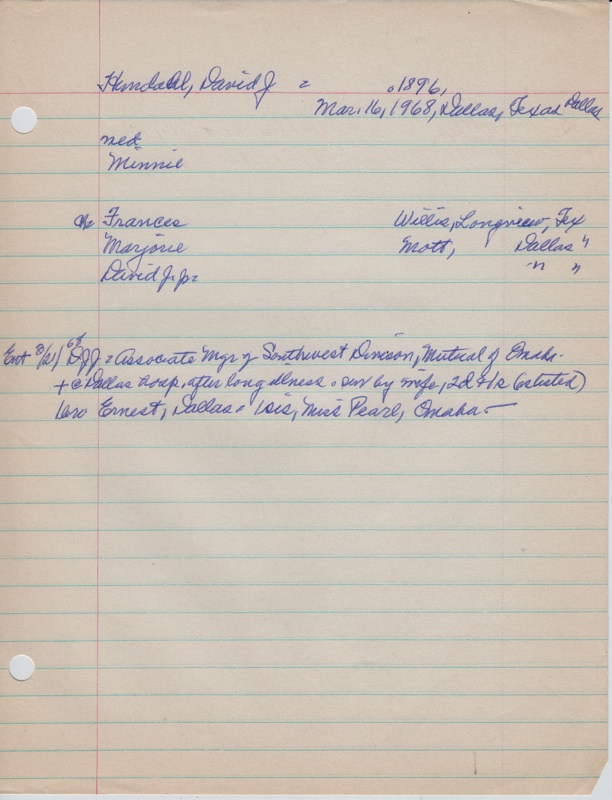 David J = 1896,
Mar. 16, 1968, Dallas, Texas Dallas
med
Minnie
Ch Frances Willis, Longview, Tex
Marjorie Mott, Dallas "
David J. Jr = " "
Ent 3/21/68 DJJ = Associate Mgr of Southwest Division, Mutual of Omaha.
+ @ Dallas hosp, after long illness. sur by wife, 2d + 1s (as listed)
1bro Ernest, Dallas = 1sis, Miss Pearl, Omaha. -